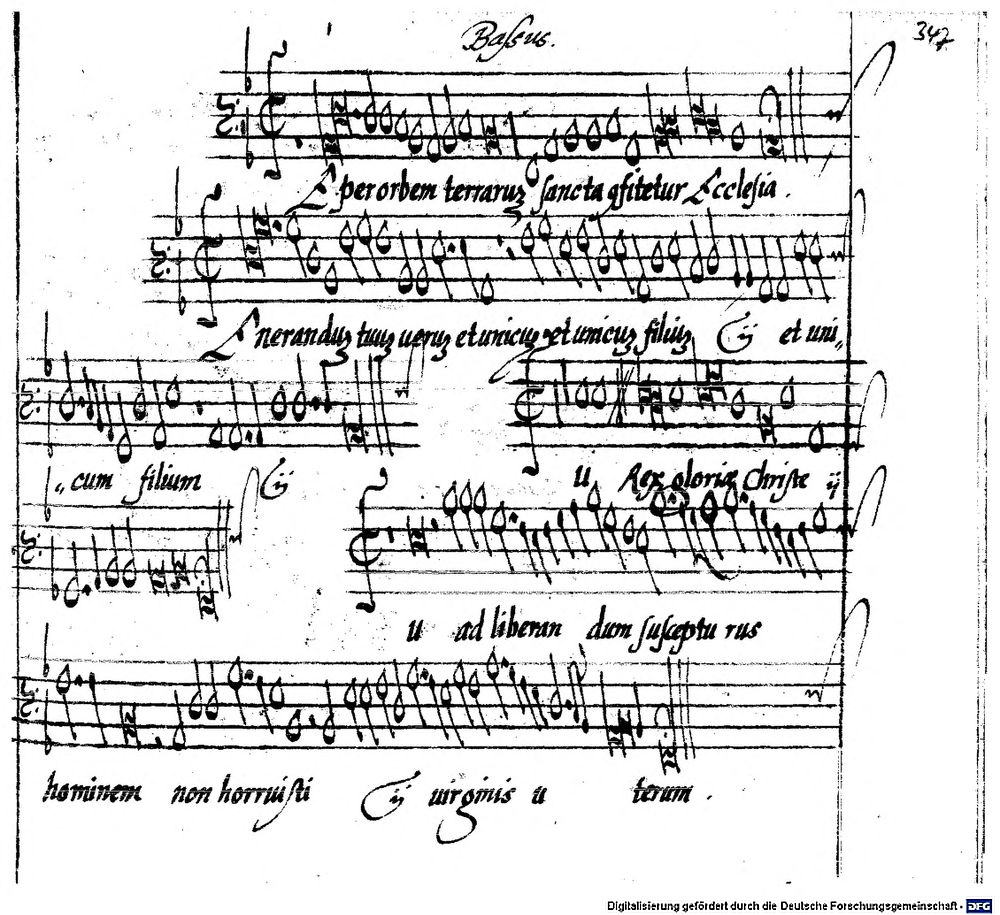 Bassus.
347
E per orbem terraruz sancta cfitetur Ecclesia .
E neranduz tuuz ueruz et unicuz et unicuz filiuz ij et uni„
„cum filium ij
U Rex gloriæ Christe ij
U ad liberan dum suscептu rus
hominem non horruisti ij uirginis u terum .
Digitalisierung gefördert durch die Deutsche Forschungsgemeinschaft - DFG